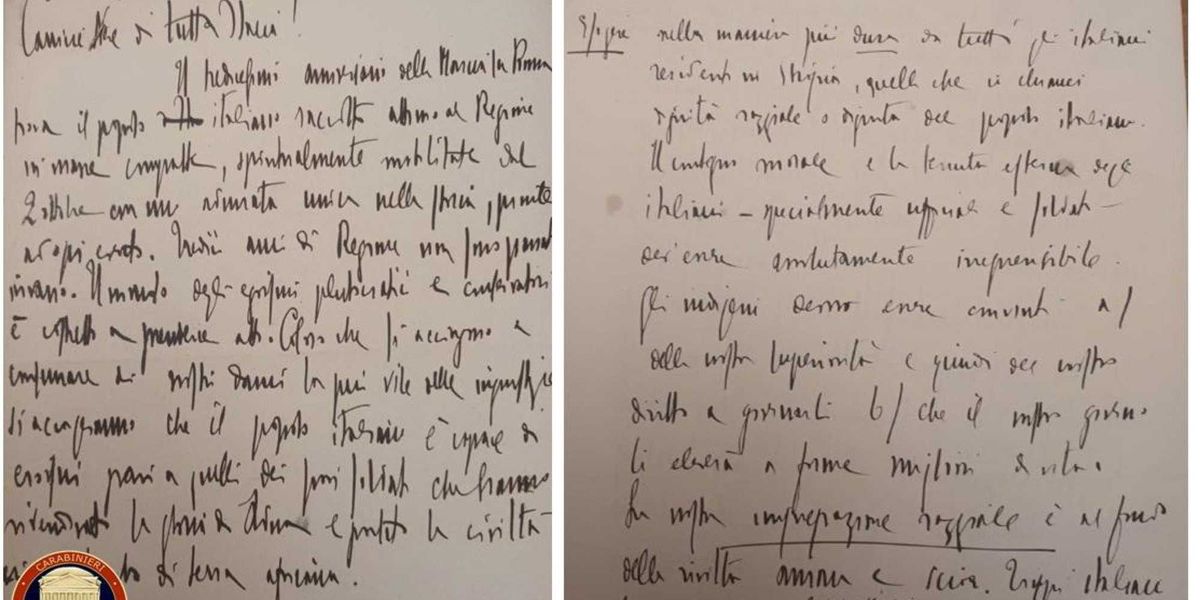 Camicie Nere di tutta Italia!
Il tredicesimo anniversario della Marcia su Roma
trova il popolo italiano raccolto attorno al Regime
in masse compatte, spiritualmente mobilitate dal
2 ottobre con una adunata unica nella storia, pronte
ad ogni evento. Tredici anni di Regime non sono passati
invano. Il mondo degli egoismi plutocratici e conservatori
è costretto a prenderne atto. Coloro che si accingono a
consumare ai nostri danni la più vile delle ingiustizie
si accorgeranno che il popolo italiano è capace di
eroismi pari a quelli dei suoi soldati che hanno
rivendicato la gloria di Adua e portato la civiltà
di terra africana.
CARABINIERI
Esigere nella maniera più dura da tutti gli italiani
residenti in Etiopia, quella che io chiamai
dignità razziale o dignità del popolo italiano.
Il contegno morale e la tenuta esterna degli
italiani - specialmente ufficiali e soldati -
dev'essere assolutamente irreprensibile.
Gli indigeni devono essere convinti a/
della nostra superiorità e quindi del nostro
diritto a governarli b/ che il nostro governo
li eleverà a forme migliori di vita.
La nostra impreparazione razziale è al fondo
della rivolta amara e Scioa. Troppi italiani